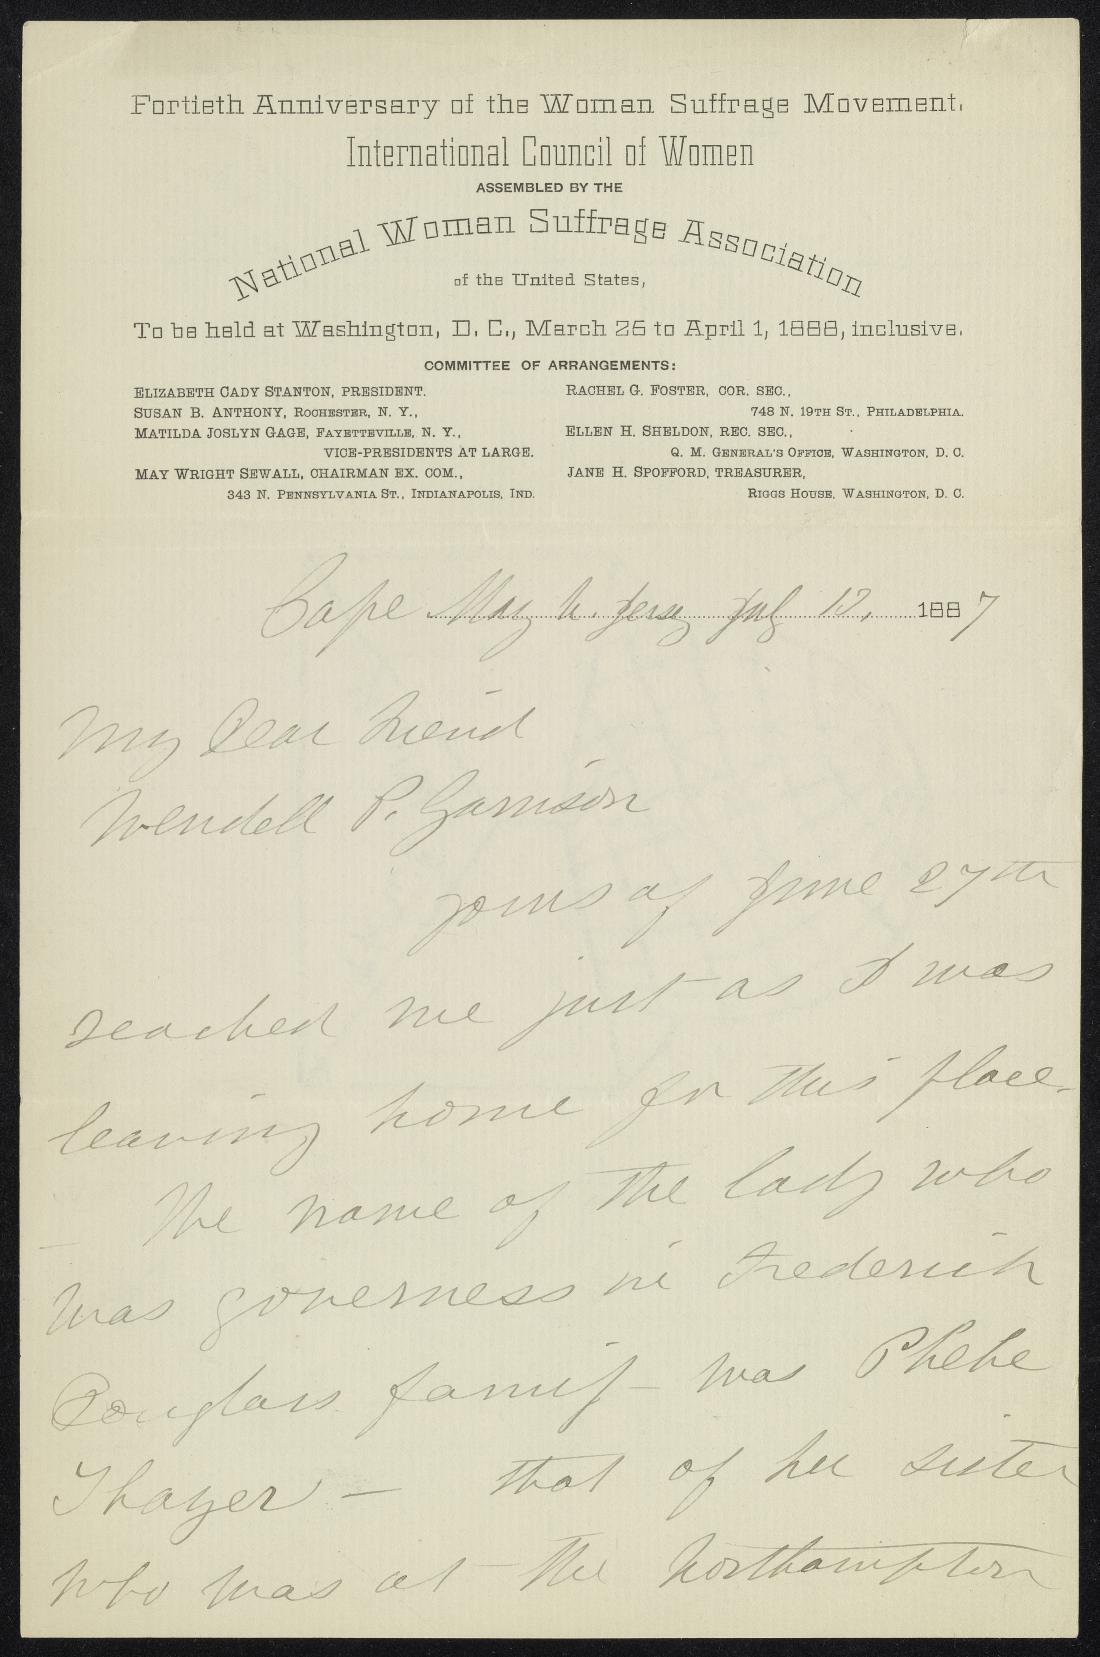 Fortieth Anniversary of the Woman Suffrage Movement.
International Council of Women
ASSEMBLED BY THE
National Woman Suffrage Association
of the United States,
To be held at Washington, D. C., March 25 to April 1, 1888, inclusive.
COMMITTEE OF ARRANGEMENTS:
ELIZABETH CADY STANTON, PRESIDENT.
SUSAN B. ANTHONY, ROCHESTER, N. Y.,
MATILDA JOSLYN GAGE, FAYETTEVILLE, N. Y.,
VICE-PRESIDENTS AT LARGE.
MAY WRIGHT SEWALL, CHAIRMAN EX. COM.,
343 N. PENNSYLVANIA ST., INDIANAPOLIS, IND.
RACHEL G. FOSTER, COR. SEC.,
748 N. 19TH ST., PHILADELPHIA.
ELLEN H. SHELDON, REC. SEC.,
Q. M. GENERAL'S OFFICE, WASHINGTON, D. C.
JANE H. SPOFFORD, TREASURER,
RIGGS HOUSE, WASHINGTON, D. C.
Cape May N. Jersey July 1887
My Dear Friend
Wendell P. Garrison
Yours of June 27th
reached me just as I was
leaving home for this place.
The name of the lady who
was governess in Frederick
Douglass family - was Phebe
Thayer - that of her sister
who was at the Northampton